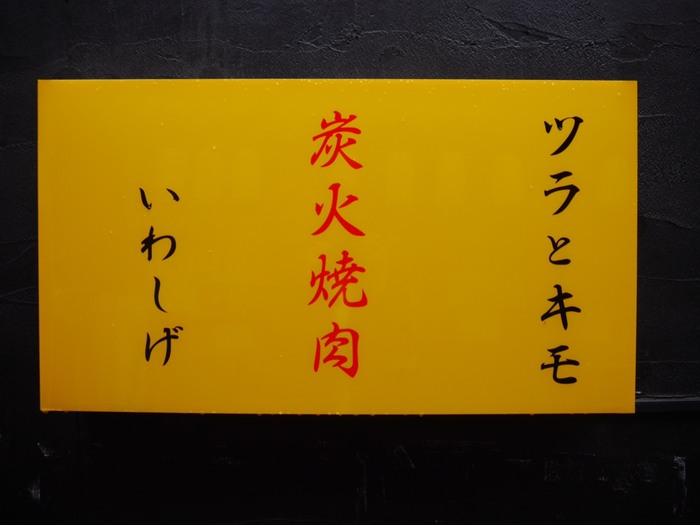 ツラとキモ
炭火焼肉
いわしげ